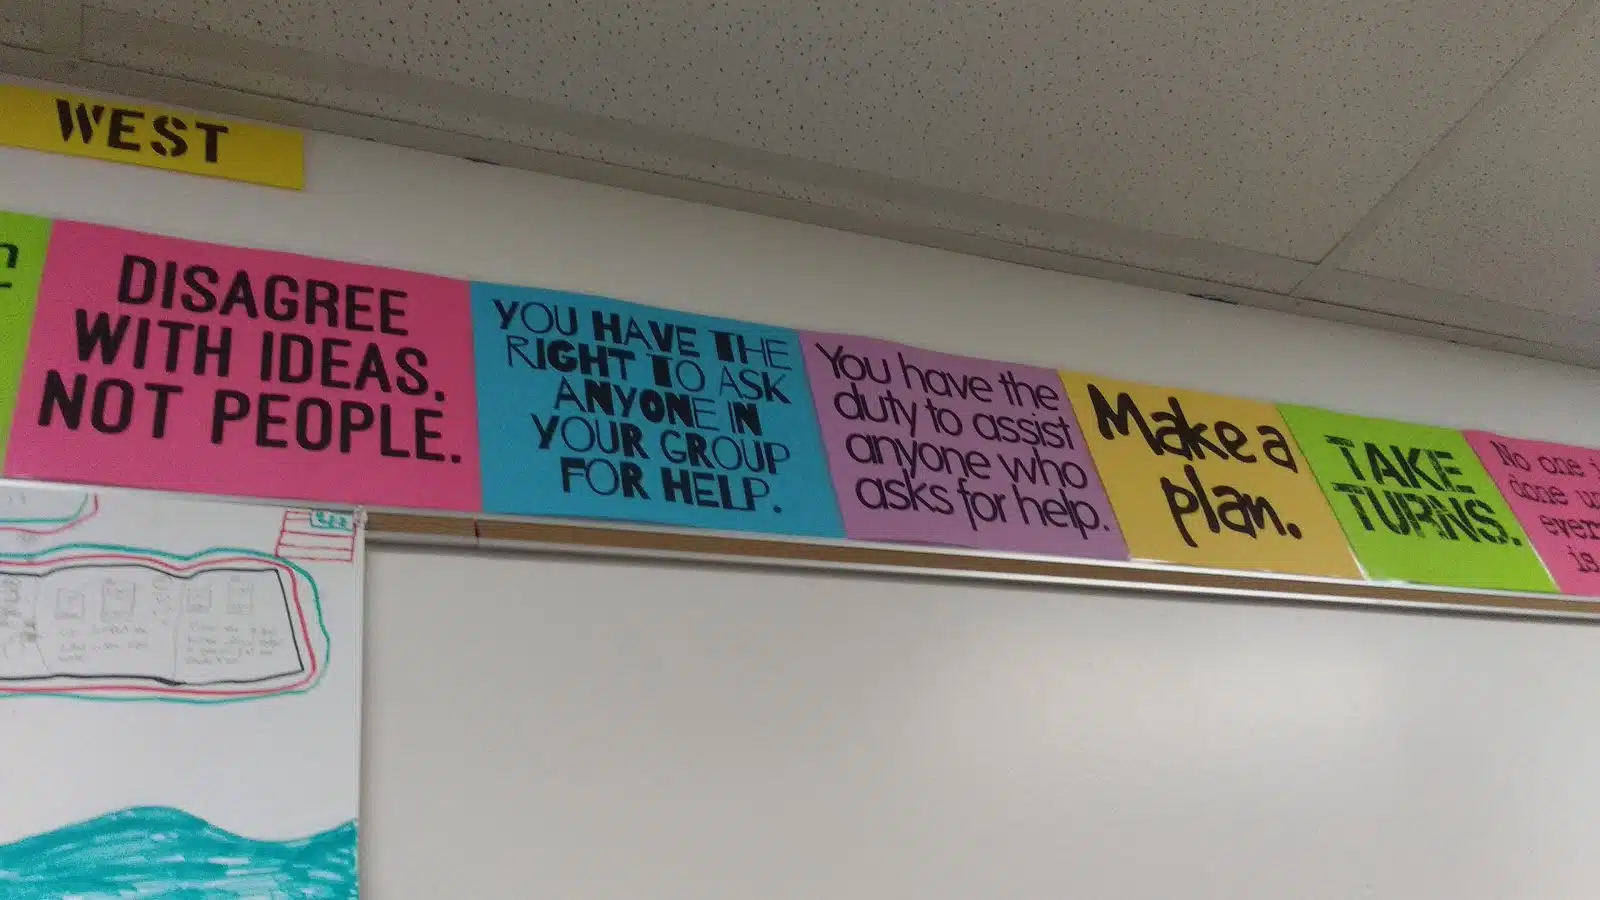 WEST
DISAGREE
WITH IDEAS.
NOT PEOPLE.
YOU HAVE THE
RIGHT TO ASK
ANYONE IN
YOUR GROUP
FOR HELP.
You have the
duty to assist
anyone who
asks for help.
Make a
plan.
TAKE
TURNS.
No one
done
is